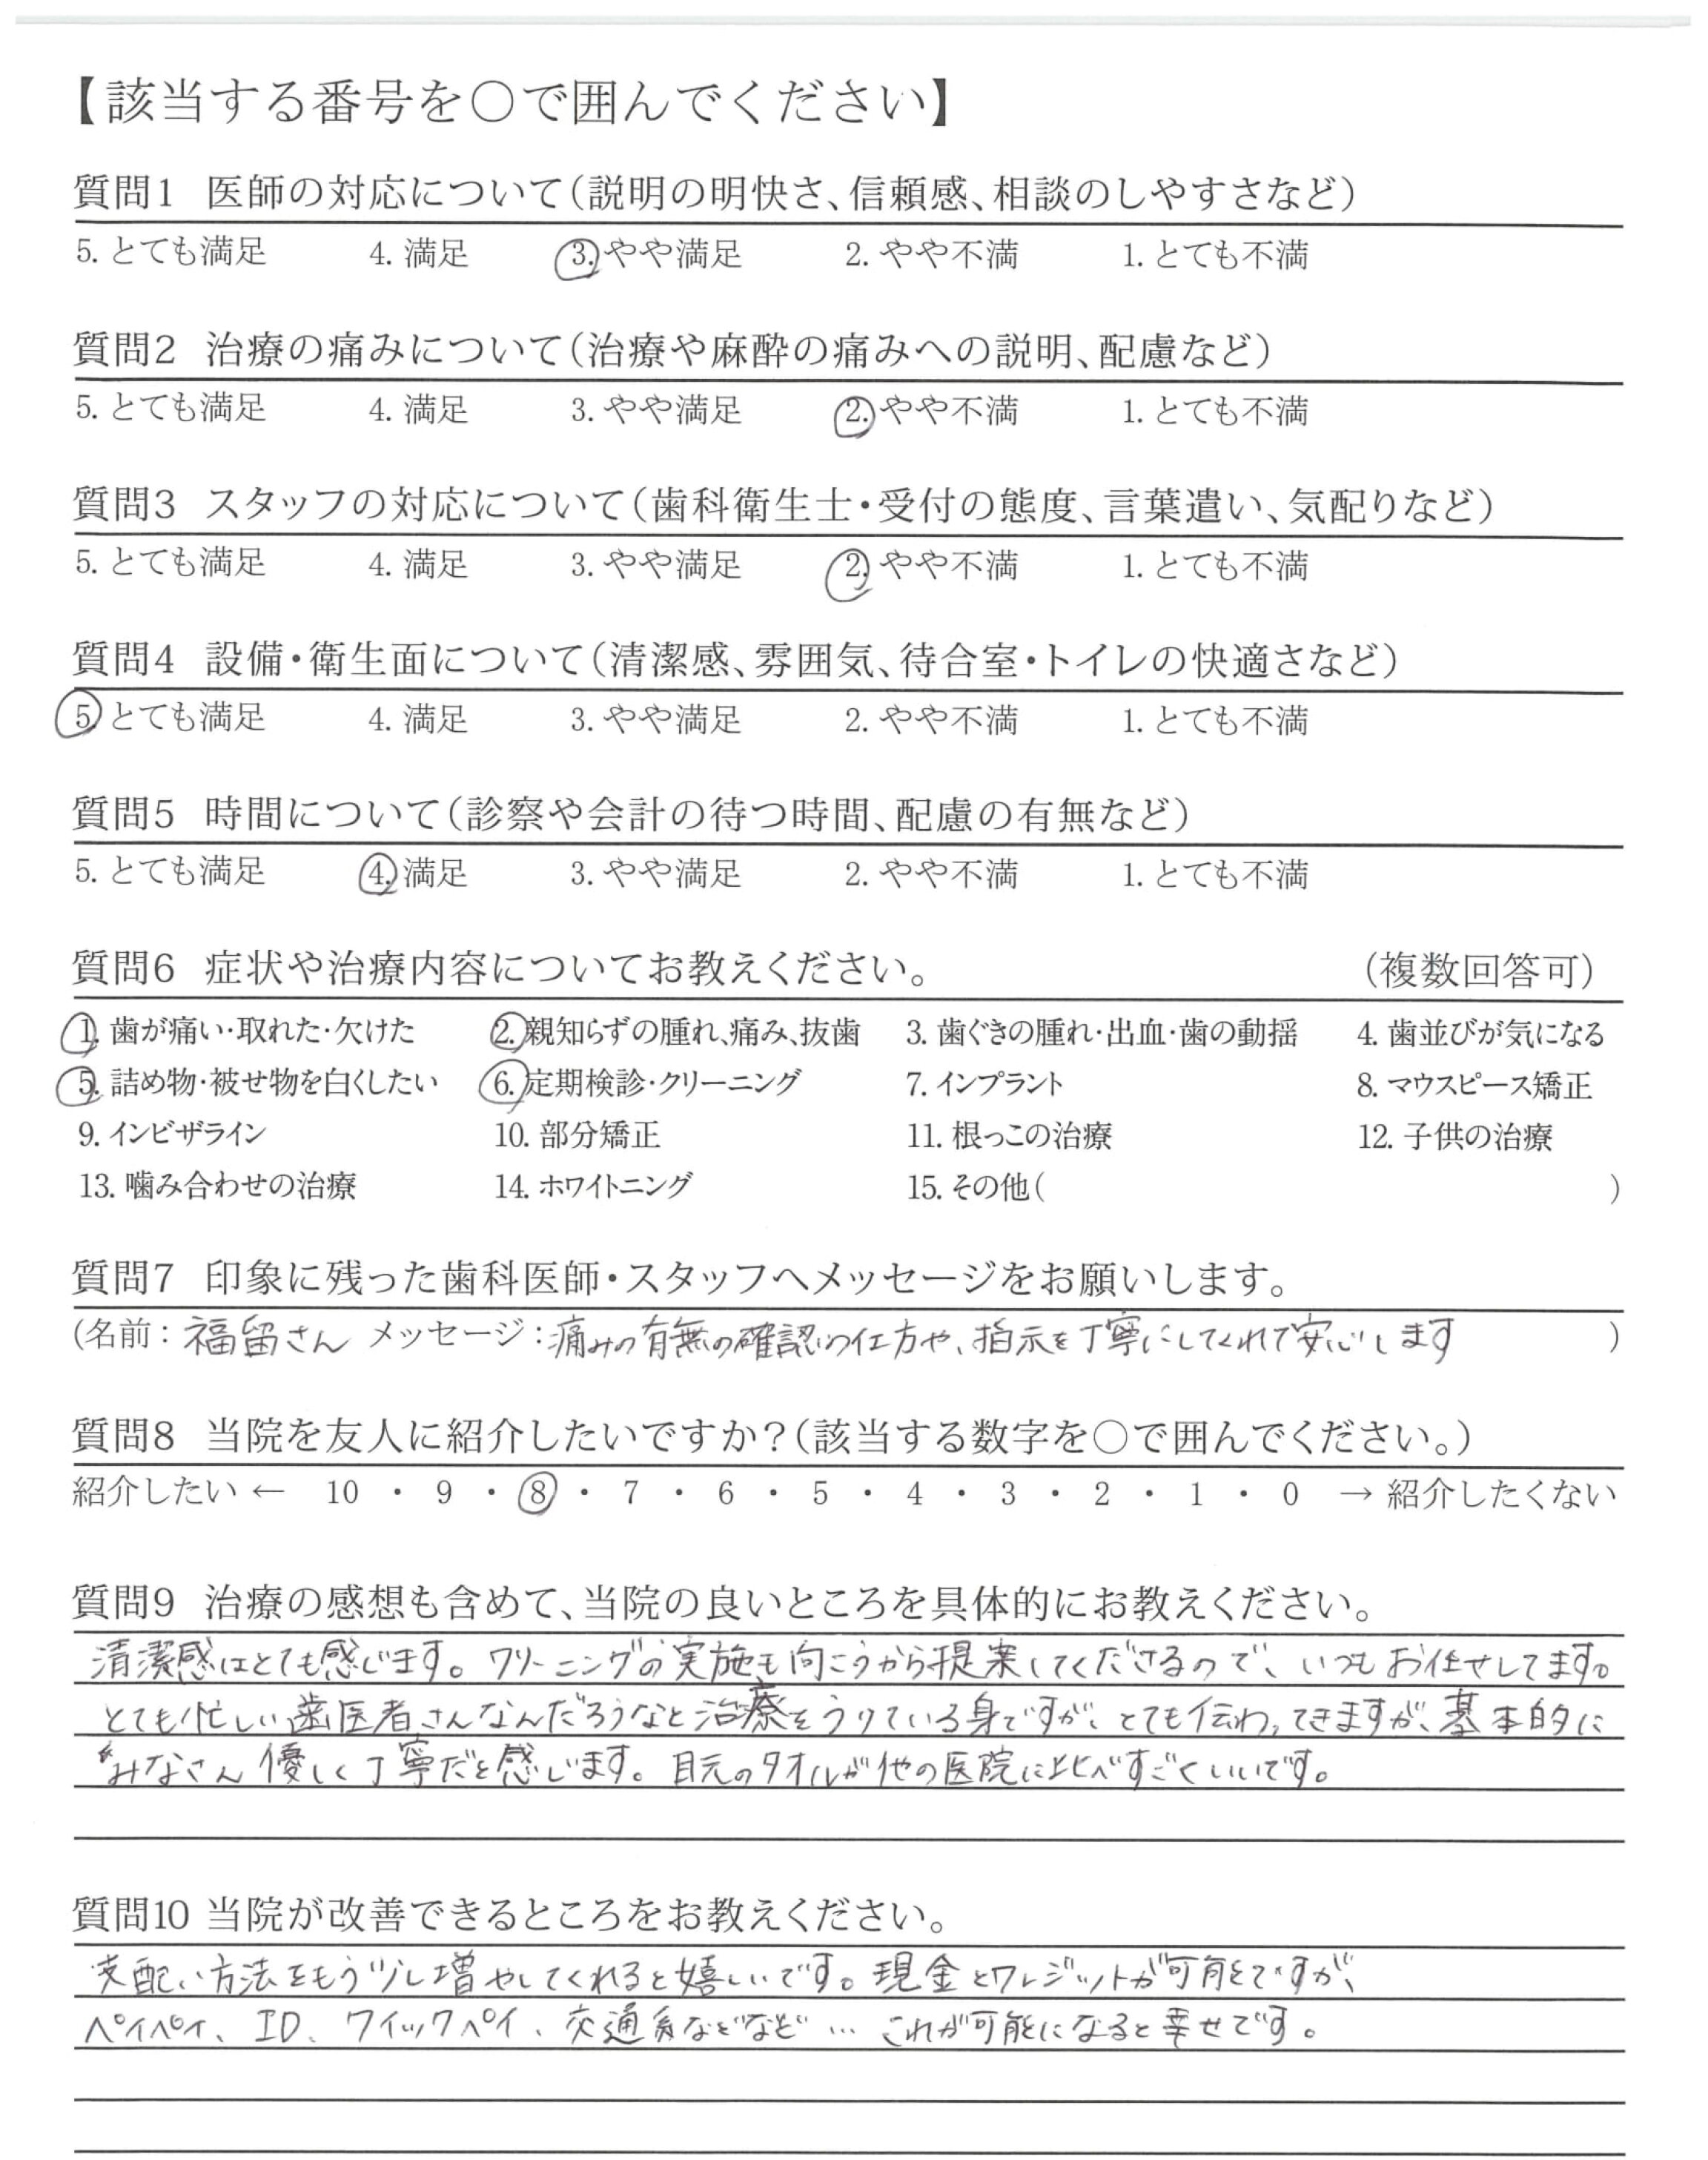 【該当する番号を○で囲んでください】
質問1 医師の対応について(説明の明快さ、信頼感、相談のしやすさなど)
5. とても満足 4. 満足 3. やや満足 2. やや不満 1. とても不満
質問2 治療の痛みについて(治療や麻酔の痛みへの説明、配慮など)
5. とても満足 4. 満足 3. やや満足 2. やや不満 1. とても不満
質問3 スタッフの対応について(歯科衛生士・受付の態度、言葉遣い、気配りなど)
5. とても満足 4. 満足 3. やや満足 2. やや不満 1. とても不満
質問4 設備・衛生面について(清潔感、雰囲気、待合室・トイレの快適さなど)
5. とても満足 4. 満足 3. やや満足 2. やや不満 1. とても不満
質問5 時間について(診察や会計の待つ時間、配慮の有無など)
5. とても満足 4. 満足 3. やや満足 2. やや不満 1. とても不満
質問6 症状や治療内容についてお教えください。 (複数回答可)
1. 歯が痛い・取れた・欠けた 2. 親知らずの腫れ、痛み、抜歯 3. 歯ぐきの腫れ・出血・歯の動揺 4. 歯並びが気になる
5. 詰め物・被せ物を白くしたい 6. 定期検診・クリーニング 7. インプラント 8. マウスピース矯正
9. インビザライン 10. 部分矯正 11. 根っこの治療 12. 子供の治療
13. 噛み合わせの治療 14. ホワイトニング 15. その他( )
質問7 印象に残った歯科医師・スタッフへメッセージをお願いします。
(名前：福留さん メッセージ：痛みの有無の確認の仕方や、指示を丁寧にしてくれて安心します )
質問8 当院を友人に紹介したいですか？(該当する数字を○で囲んでください。)
紹介したい ← 10 ・ 9 ・ 8 ・ 7 ・ 6 ・ 5 ・ 4 ・ 3 ・ 2 ・ 1 ・ 0 → 紹介したくない
質問9 治療の感想も含めて、当院の良いところを具体的にお教えください。
清潔感はとても感じます。クリーニングの実施も向こうから提案してくださるので、いつもお任せしてます。
とても忙しい歯医者さんなんだろうなと治療をうけている身ですが、とても伝わってきますが、基本的に
みなさん優しく丁寧だと感じます。目元のタオルが他の医院に比べすごくいいです。
質問10 当院が改善できるところをお教えください。
支配い方法をもう少し増やしてくれると嬉しいです。現金とクレジットが可能ですが、
ペイペイ、ID、クイックペイ、交通系などなど… これが可能になると幸せです。